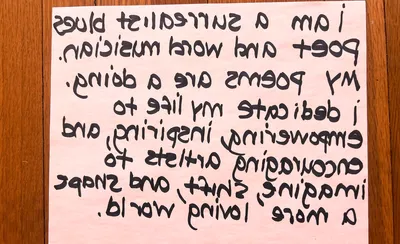 i am a surrealist blues
poet and word musician.
my poems are a doing.
i dedicate my life to
empowering, inspiring, and
encouraging artists to
imagine, shift, and shape
a more loving world.